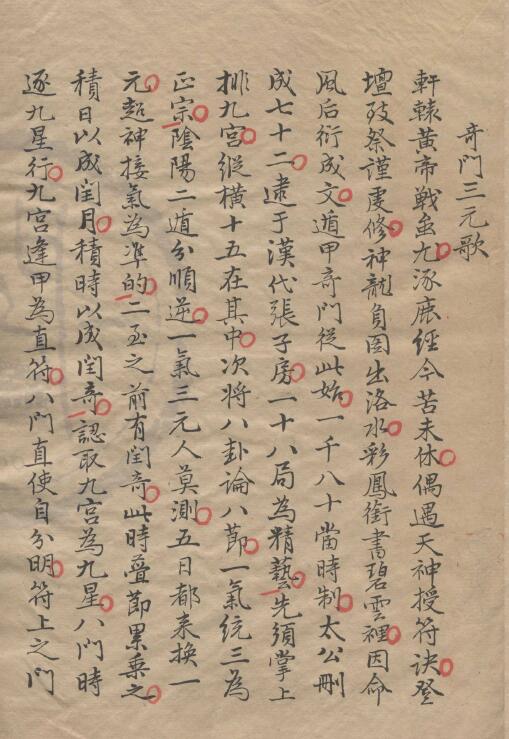 奇門三元歌
軒轅黃帝戰蚩尤涿鹿經今苦未休偶遇天神授符訣登
壇致祭謹虔修神龍負圖出洛水彩鳳銜書碧雲裡因命
風后衍成文遁甲奇門從此始一千八十當時制太公刪
成七十二逮于漢代張子房一十八局為精藝先須掌上
排九宮縱横十五在其中次將八卦論八節一氣統三為
正宗陰陽二遁分順逆一氣三元人莫測五日都來換一
元超神接氣為準的二至之前有閏奇此時疊節累乘之
積日以成閏月積時以成閏奇認取九宮為九星八門時
逐九星行九宮逢甲為直符八門直使自分明符上之門